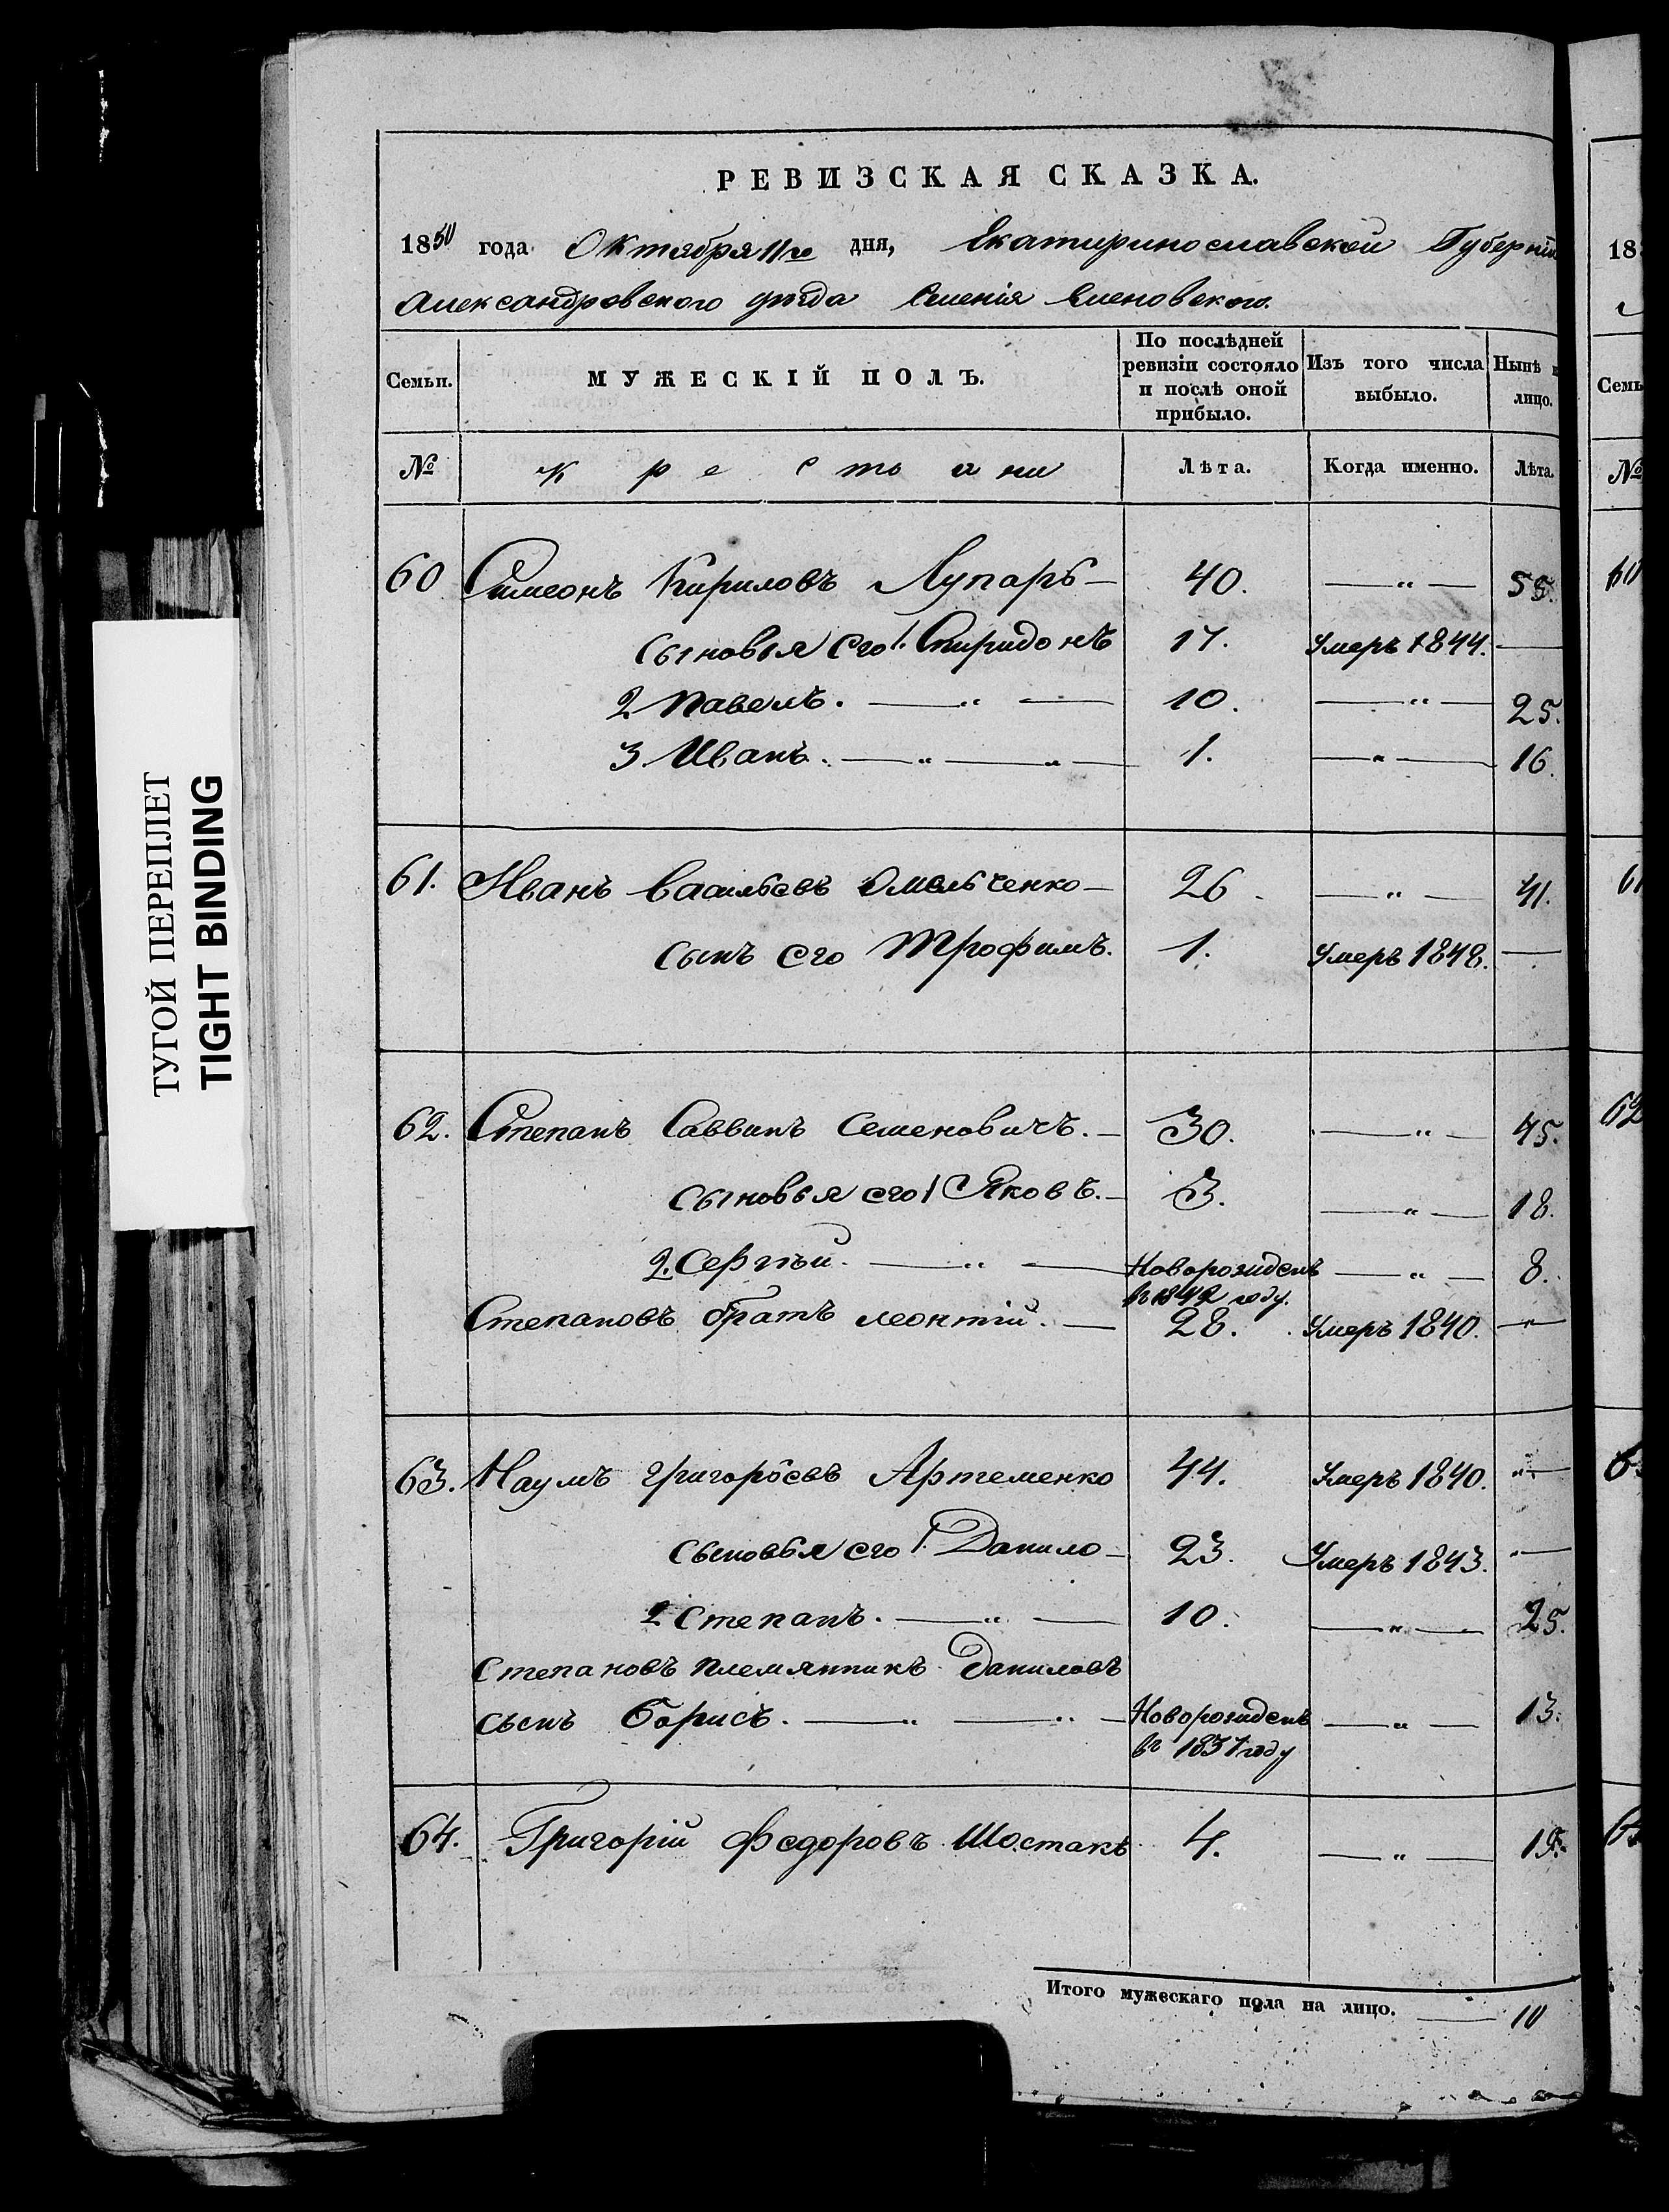 РЕВИЗСКАЯ СКАЗКА.
1850 года Октября 11го дня, Екатеринославской Губерніи
Александровского уезда Селенія Еленовского.
Семьи. МУЖЕСКІЙ ПОЛЪ. По послѣдней ревизіи состояло и послѣ оной прибыло. Изъ того числа выбыло. Нынѣ лицо.
№ Крестьяни Лѣта. Когда именно. Лѣта.
60 Симеонъ Кириловъ Лупарь — 40. —"— 55.
Сыновья его 1. Спиридонъ 17. Умеръ 1844. —
2 Павелъ. —"— 10. —"— 25.
3 Иванъ. —"—"— 1. —"— 16.
61. Иванъ Васильевъ Омельченко — 26 —"— 41.
сынъ его Трофимъ. 1. Умеръ 1848. —
62. Степанъ Саввинъ Семеновичъ. — 30. —"— 45.
Сыновья его 1 Яковъ. — 3. —"— 18.
2. Сергѣй. —"— Новорожденъ въ 1842 году. —"— 8.
Степановъ братъ леонтій. — 28. Умеръ 1840. —"—
63. Наумъ григорьевъ Артеменко 44. Умеръ 1840. "—
Сыновья его 1. Данило — 23. Умеръ 1843. "—
2 Степанъ. —"— 10. —"— 25.
Степановъ племянникъ Даниловъ
сынъ Борисъ. —"—"— Новорожденъ въ 1837 году —"— 13.
64. Григорій Федоровъ Шостакъ 4. —"— 19.
Итого мужескаго пола на лицо. — 10
ТУГОЙ ПЕРЕПЛЕТ
TIGHT BINDING
18
Семь
№
60
61
62
6
64